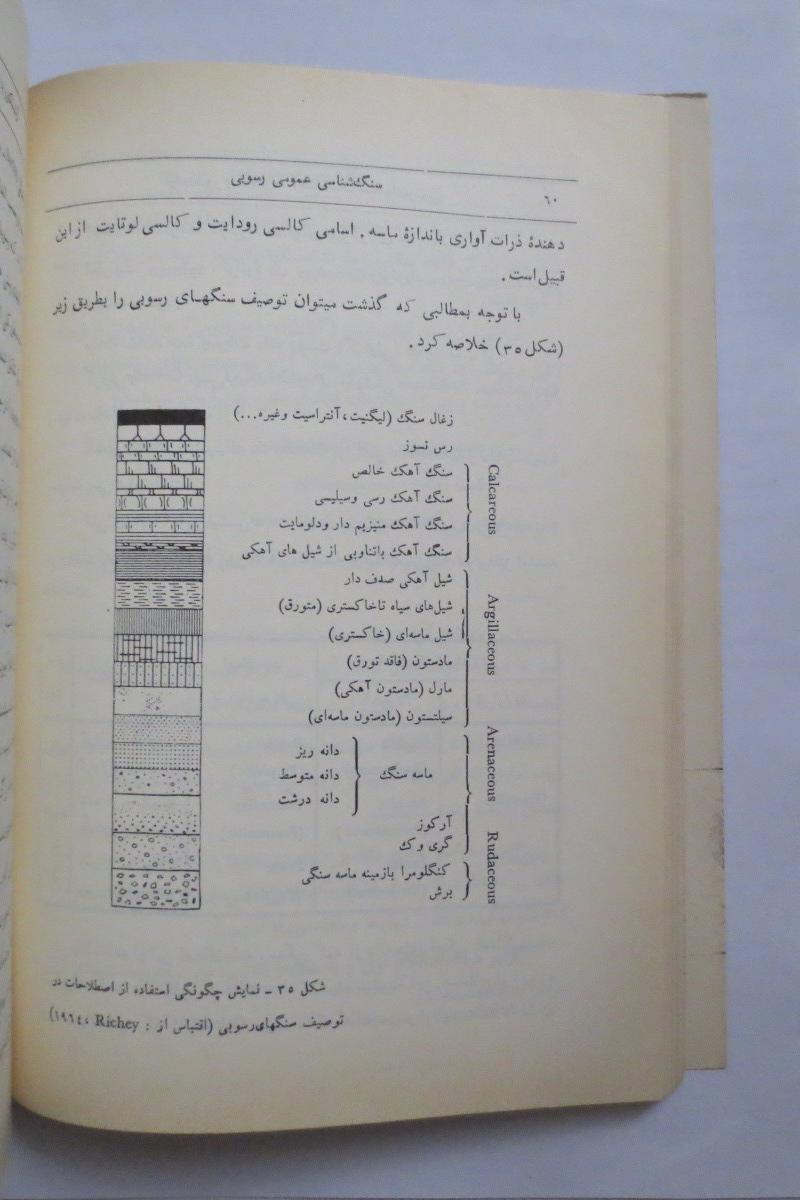 سنگ‌شناسی عمومی رسوبی
٦٠
دهندهٔ ذرات آواری باندازهٔ ماسه. اسامی کالسی رودایت و کالسی لوتایت از این
قبیل است.
با توجه بمطالبی که گذشت میتوان توصیف سنگهای رسوبی را بطریق زیر
(شکل ٣٥) خلاصه کرد.
زغال سنگ (لیگنیت، آنتراسیت وغیره...)
رس نسوز
Calcareous
سنگ آهک خالص
سنگ آهک رسی وسیلیسی
سنگ آهک منیزیم دار ودلومایت
سنگ آهک باتناوبی از شیل های آهکی
Argillaceous
شیل آهکی صدف دار
شیل‌های سیاه تاخاکستری (متورق)
شیل ماسه‌ای (خاکستری)
مادستون (فاقد تورق)
مارل (مادستون آهکی)
سیلتستون (مادستون ماسه‌ای)
Arenaceous
ماسه سنگ
دانه ریز
دانه متوسط
دانه درشت
آرکوز
گری وک
Rudaceous
کنگلومرا بازمینه ماسه سنگی
برش
شکل ٣٥ - نمایش چگونگی استفاده از اصطلاحات در
توصیف سنگهای رسوبی (اقتباس از : Richey، ١٩٦٤)